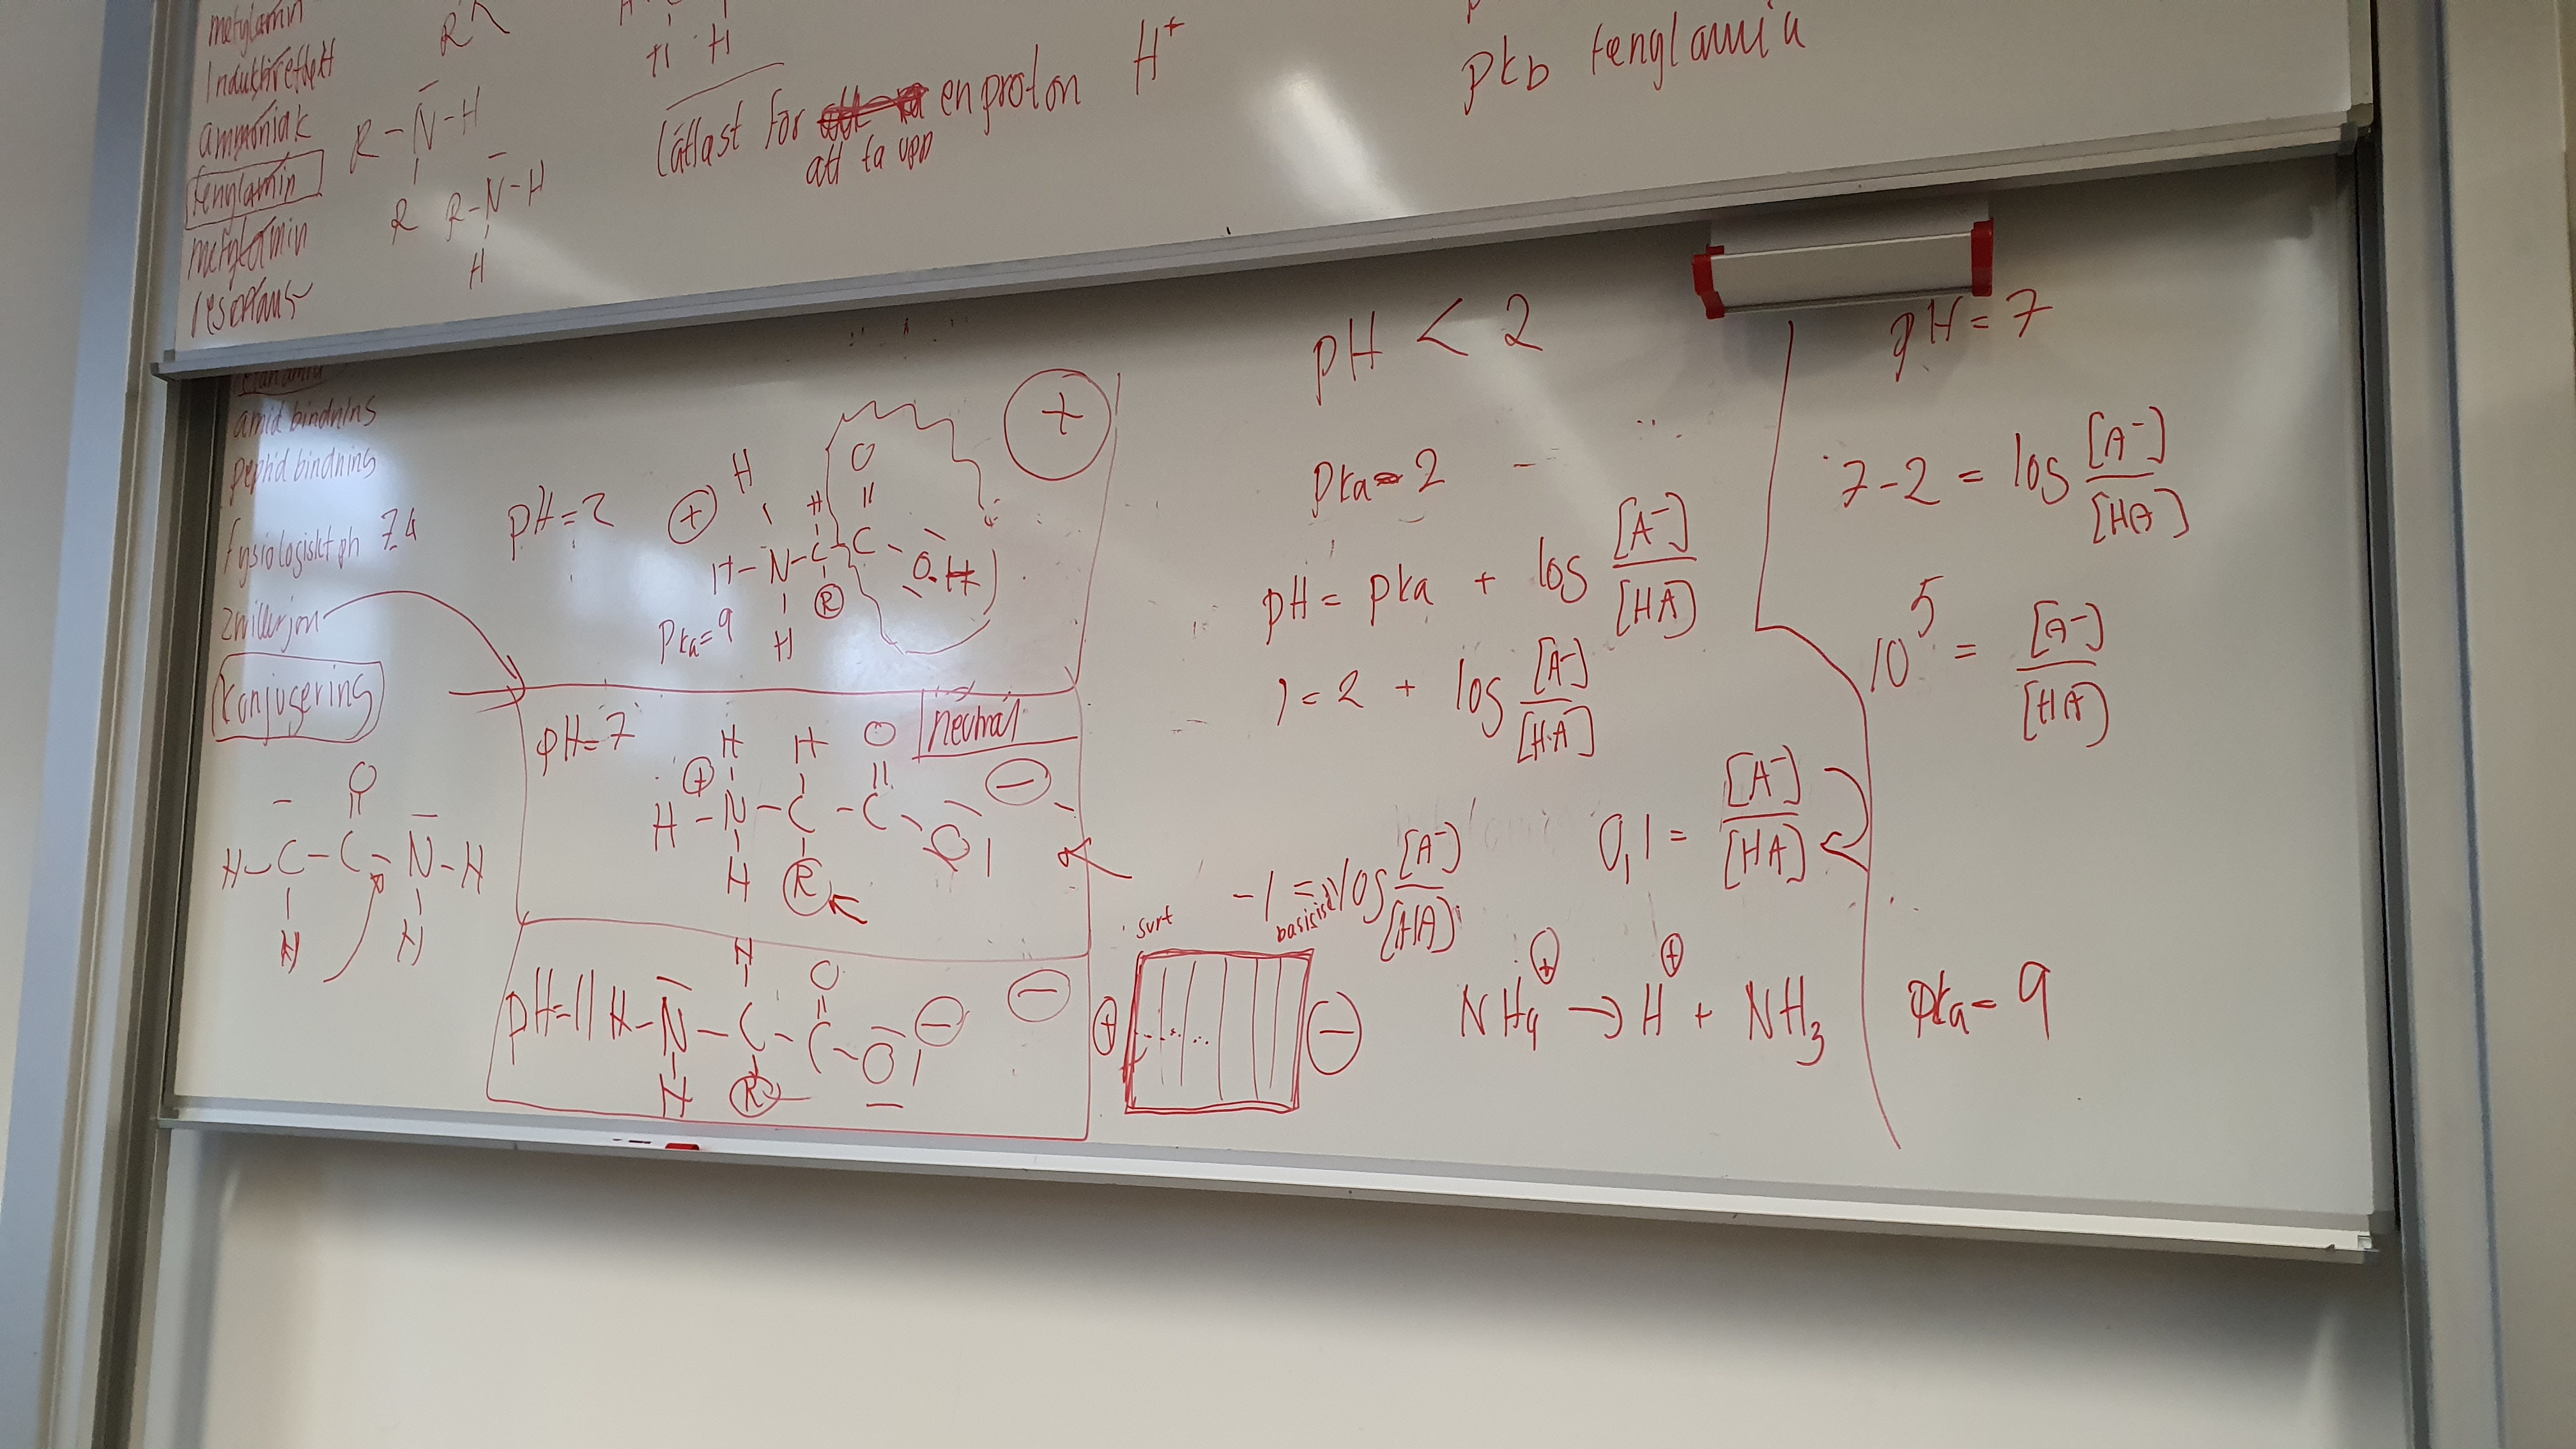 metylamin
Induktiveffekt
ammoniak
fenylamin
metylamin
resonans
R
R-N-H
R
R-N-H
H
H H
lättast för en proton H⁺
att ta upp
pkb fenylamin
amid bindning
peptid bindning
fysiologiskt ph 7.4
zwitterjon
Konjugering
O
H-C-C-N-H
H H
pH=2
+
H H O
H-N-C-C-O-H
H R
Pka=9
+
pH=7
neutral
H H O
+
H-N-C-C-O
−
H R
pH=11
H O
H-N-C-C-O
−
H R
−
pH < 2
pka=2
pH = pka + log [A⁻]/[HA]
1=2 + log [A⁻]/[HA]
-1 = log [A⁻]/[HA]
0,1 = [A⁻]/[HA]
surt
+ −
NH₄⁺ → H⁺ + NH₃
pH=7
7-2 = log [A⁻]/[HA]
10⁵ = [A⁻]/[HA]
pka=9